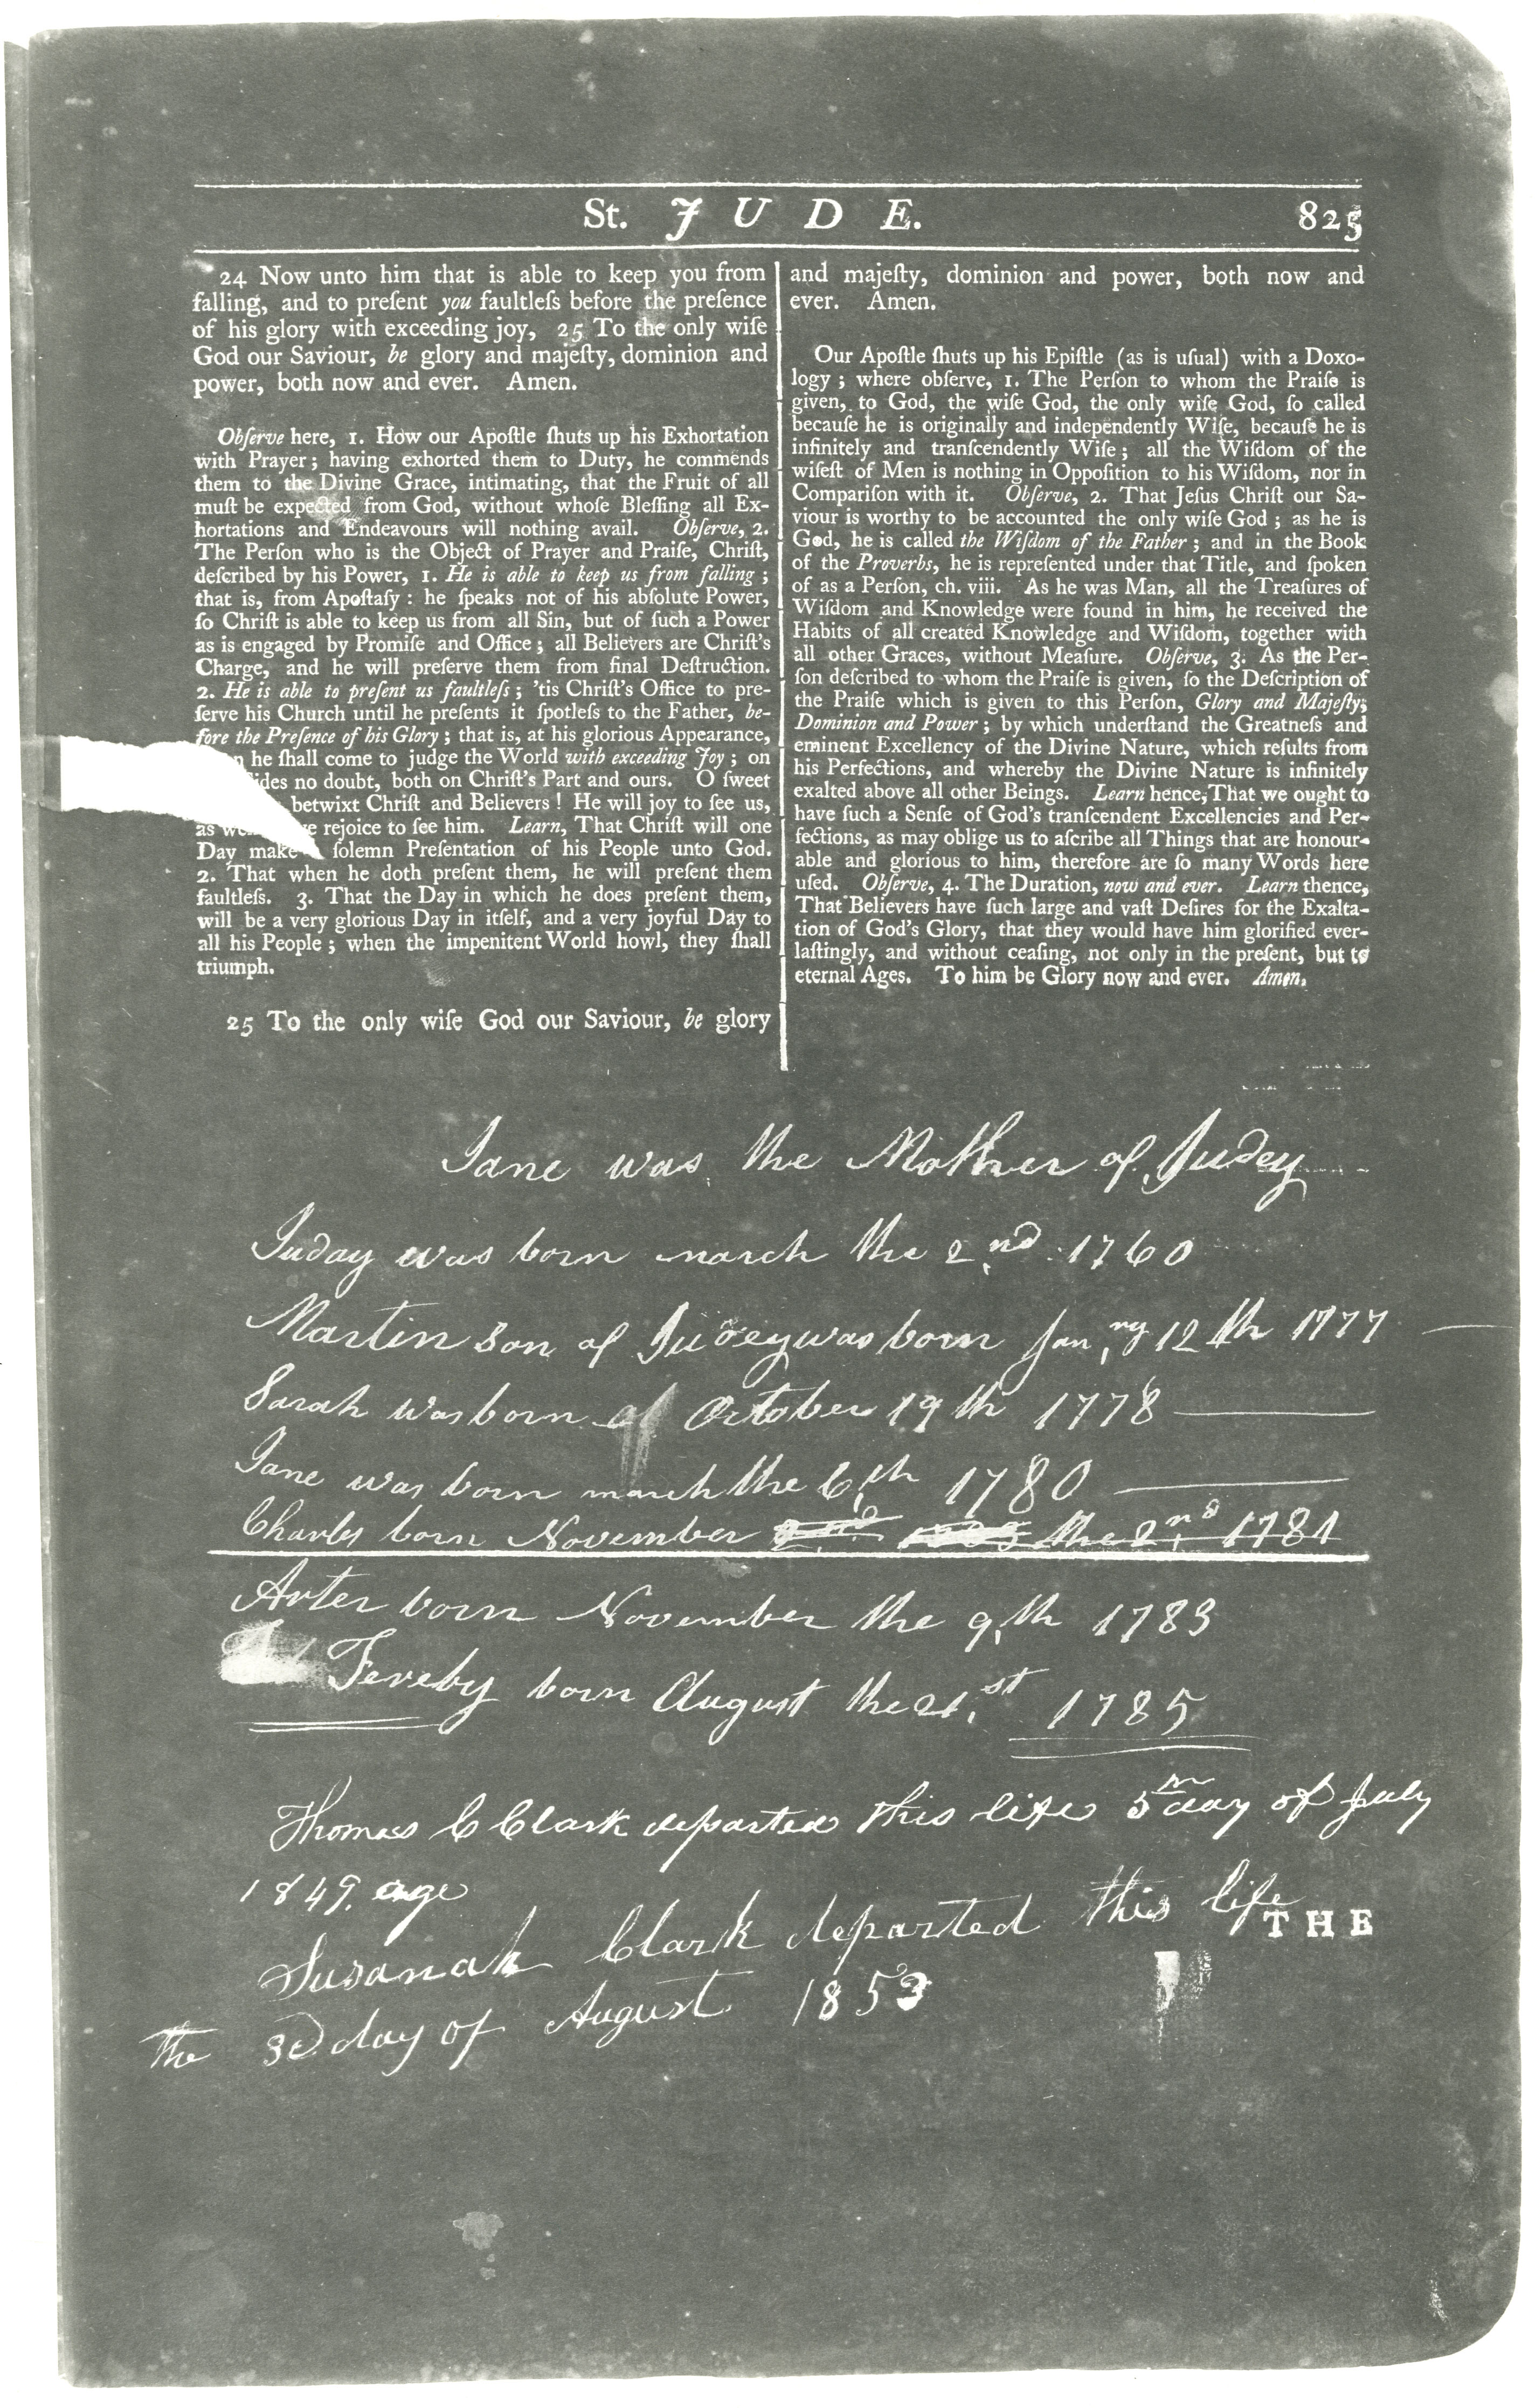 St. JUDE. 825
24 Now unto him that is able to keep you from
falling, and to preſent you faultleſs before the preſence
of his glory with exceeding joy, 25 To the only wiſe
God our Saviour, be glory and majeſty, dominion and
power, both now and ever. Amen.
Obſerve here, 1. How our Apoſtle ſhuts up his Exhortation
with Prayer; having exhorted them to Duty, he commends
them to the Divine Grace, intimating, that the Fruit of all
muſt be expected from God, without whoſe Bleſſing all Ex-
hortations and Endeavours will nothing avail. Obſerve, 2.
The Perſon who is the Object of Prayer and Praiſe, Chriſt,
deſcribed by his Power, 1. He is able to keep us from falling;
that is, from Apoſtaſy: he ſpeaks not of his abſolute Power,
ſo Chriſt is able to keep us from all Sin, but of ſuch a Power
as is engaged by Promiſe and Office; all Believers are Chriſt's
Charge, and he will preſerve them from final Deſtruction.
2. He is able to preſent us faultleſs; 'tis Chriſt's Office to pre-
ſerve his Church until he preſents it ſpotleſs to the Father, be-
fore the Preſence of his Glory; that is, at his glorious Appearance,
he ſhall come to judge the World with exceeding Joy; on
no doubt, both on Chriſt's Part and ours. O ſweet
betwixt Chriſt and Believers! He will joy to ſee us,
as rejoice to ſee him. Learn, That Chriſt will one
Day make ſolemn Preſentation of his People unto God.
2. That when he doth preſent them, he will preſent them
faultleſs. 3. That the Day in which he does preſent them,
will be a very glorious Day in itſelf, and a very joyful Day to
all his People; when the impenitent World howl, they ſhall
triumph.
25 To the only wiſe God our Saviour, be glory
and majeſty, dominion and power, both now and
ever. Amen.
Our Apoſtle ſhuts up his Epiſtle (as is uſual) with a Doxo-
logy; where obſerve, 1. The Perſon to whom the Praiſe is
given, to God, the wiſe God, the only wiſe God, ſo called
becauſe he is originally and independently Wiſe, becauſe he is
infinitely and tranſcendently Wiſe; all the Wiſdom of the
wiſeſt of Men is nothing in Oppoſition to his Wiſdom, nor in
Compariſon with it. Obſerve, 2. That Jeſus Chriſt our Sa-
viour is worthy to be accounted the only wiſe God; as he is
God, he is called the Wiſdom of the Father; and in the Book
of the Proverbs, he is repreſented under that Title, and ſpoken
of as a Perſon, ch. viii. As he was Man, all the Treaſures of
Wiſdom and Knowledge were found in him, he received the
Habits of all created Knowledge and Wiſdom, together with
all other Graces, without Meaſure. Obſerve, 3. As the Per-
ſon deſcribed to whom the Praiſe is given, ſo the Deſcription of
the Praiſe which is given to this Perſon, Glory and Majeſty;
Dominion and Power; by which underſtand the Greatneſs and
eminent Excellency of the Divine Nature, which reſults from
his Perfections, and whereby the Divine Nature is infinitely
exalted above all other Beings. Learn hence, That we ought to
have ſuch a Senſe of God's tranſcendent Excellencies and Per-
fections, as may oblige us to aſcribe all Things that are honour-
able and glorious to him, therefore are ſo many Words here
uſed. Obſerve, 4. The Duration, now and ever. Learn thence,
That Believers have ſuch large and vaſt Deſires for the Exalta-
tion of God's Glory, that they would have him glorified ever-
laſtingly, and without ceaſing, not only in the preſent, but to
eternal Ages. To him be Glory now and ever. Amen.
Jane was the Mother of Judey
Juday was born march the 2nd 1760
Martin Son of Judey was born Janry 12th 1777
Sarah was born October 19th 1778
Jane was born march the 6th 1780
Charles born November the 2nd 1781
Arter born November the 9th 1783
Fereby born August the 21st 1785
Thomas C Clark departed this life 5th day of July
1849. age
Susanah Clark departed this life
THE
the 3d day of August 1853